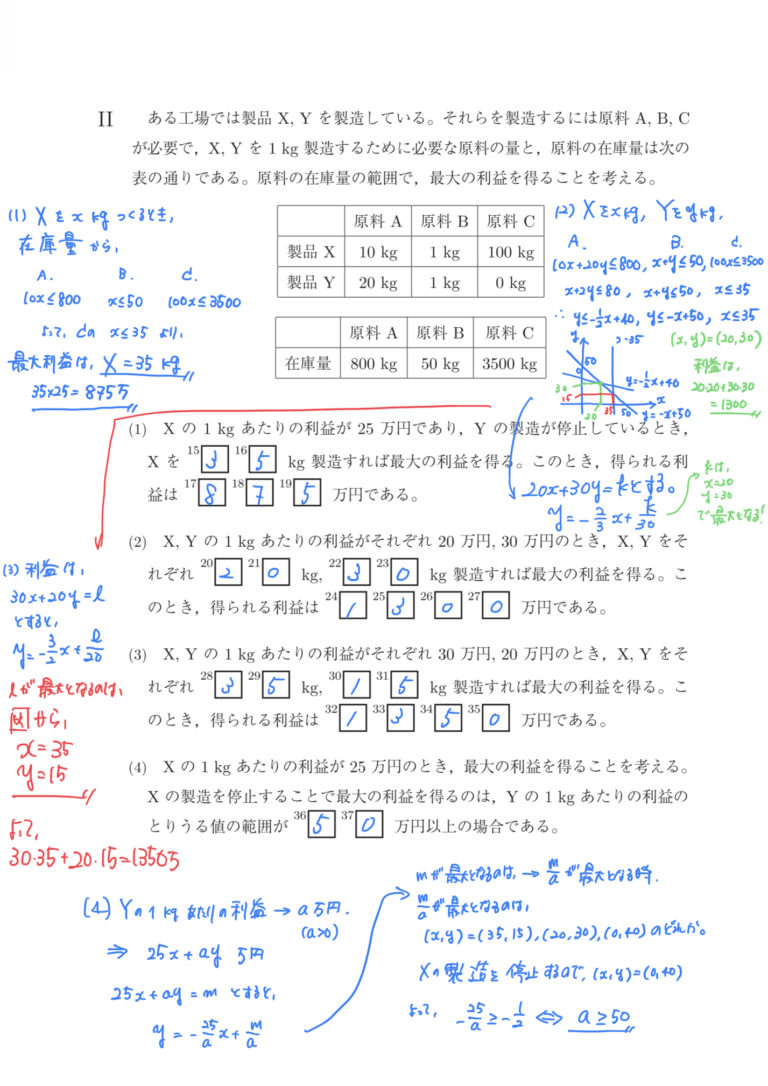 II ある工場では製品 X, Y を製造している。それらを製造するには原料 A, B, C
が必要で，X, Y を 1 kg 製造するために必要な原料の量と，原料の在庫量は次の
表の通りである。原料の在庫量の範囲で，最大の利益を得ることを考える。
原料 A 原料 B 原料 C
製品 X 10 kg 1 kg 100 kg
製品 Y 20 kg 1 kg 0 kg
原料 A 原料 B 原料 C
在庫量 800 kg 50 kg 3500 kg
(1) X を x kg つくるとき,
在庫量から,
A. B. C.
10x≦800 x≦50 100x≦3500
よって, Cの x≦35 より,
最大利益は, X=35 kg
35×25=875万
(2) Xをxkg, Yをykg,
A. B. C.
10x+20y≦800, x+y≦50, 100x≦3500
x+2y≦80, x+y≦50, x≦35
∴ y≦-1/2x+40, y≦-x+50, x≦35
(x,y)=(20,30)
利益は,
20・20+30・30
=1300
y
50
30
15
20
35
50
x
y=-1/2x+40
y=-x+50
(1) X の 1 kg あたりの利益が 25 万円であり，Y の製造が停止しているとき，
X を 15 3 16 5 kg 製造すれば最大の利益を得る。このとき，得られる利
益は 17 8 18 7 19 5 万円である。
20x+30y=kとする。
y=-2/3x+k/30
kは,
x=20
y=30
で最大となる!
(2) X, Y の 1 kg あたりの利益がそれぞれ 20 万円, 30 万円のとき，X, Y をそ
れぞれ 20 2 21 0 kg, 22 3 23 0 kg 製造すれば最大の利益を得る。こ
のとき，得られる利益は 24 1 25 3 26 0 27 0 万円である。
(3) X, Y の 1 kg あたりの利益がそれぞれ 30 万円, 20 万円のとき，X, Y をそ
れぞれ 28 3 29 5 kg, 30 1 31 5 kg 製造すれば最大の利益を得る。こ
のとき，得られる利益は 32 1 33 3 34 5 35 0 万円である。
(3) 利益は,
30x+20y=l
とすると,
y=-3/2x+l/20
lが最大となるのは,
図から,
x=35
y=15
よって,
30・35+20・15=1350万
(4) X の 1 kg あたりの利益が 25 万円のとき，最大の利益を得ることを考える。
X の製造を停止することで最大の利益を得るのは，Y の 1 kg あたりの利益の
とりうる値の範囲が 36 5 37 0 万円以上の場合である。
(4) Yの1kgあたりの利益→a万円.
(a>0)
⇒ 25x+ay 万円
25x+ay=m とすると,
y=-25/ax+m/a
mが最大となるのは,→m/aが最大となる時.
m/aが最大となるのは,
(x,y)=(35,15),(20,30),(0,40)のどれか。
Xの製造を停止するので,(x,y)=(0,40)
よって, -25/a≧-1/2 ⇔ a≧50